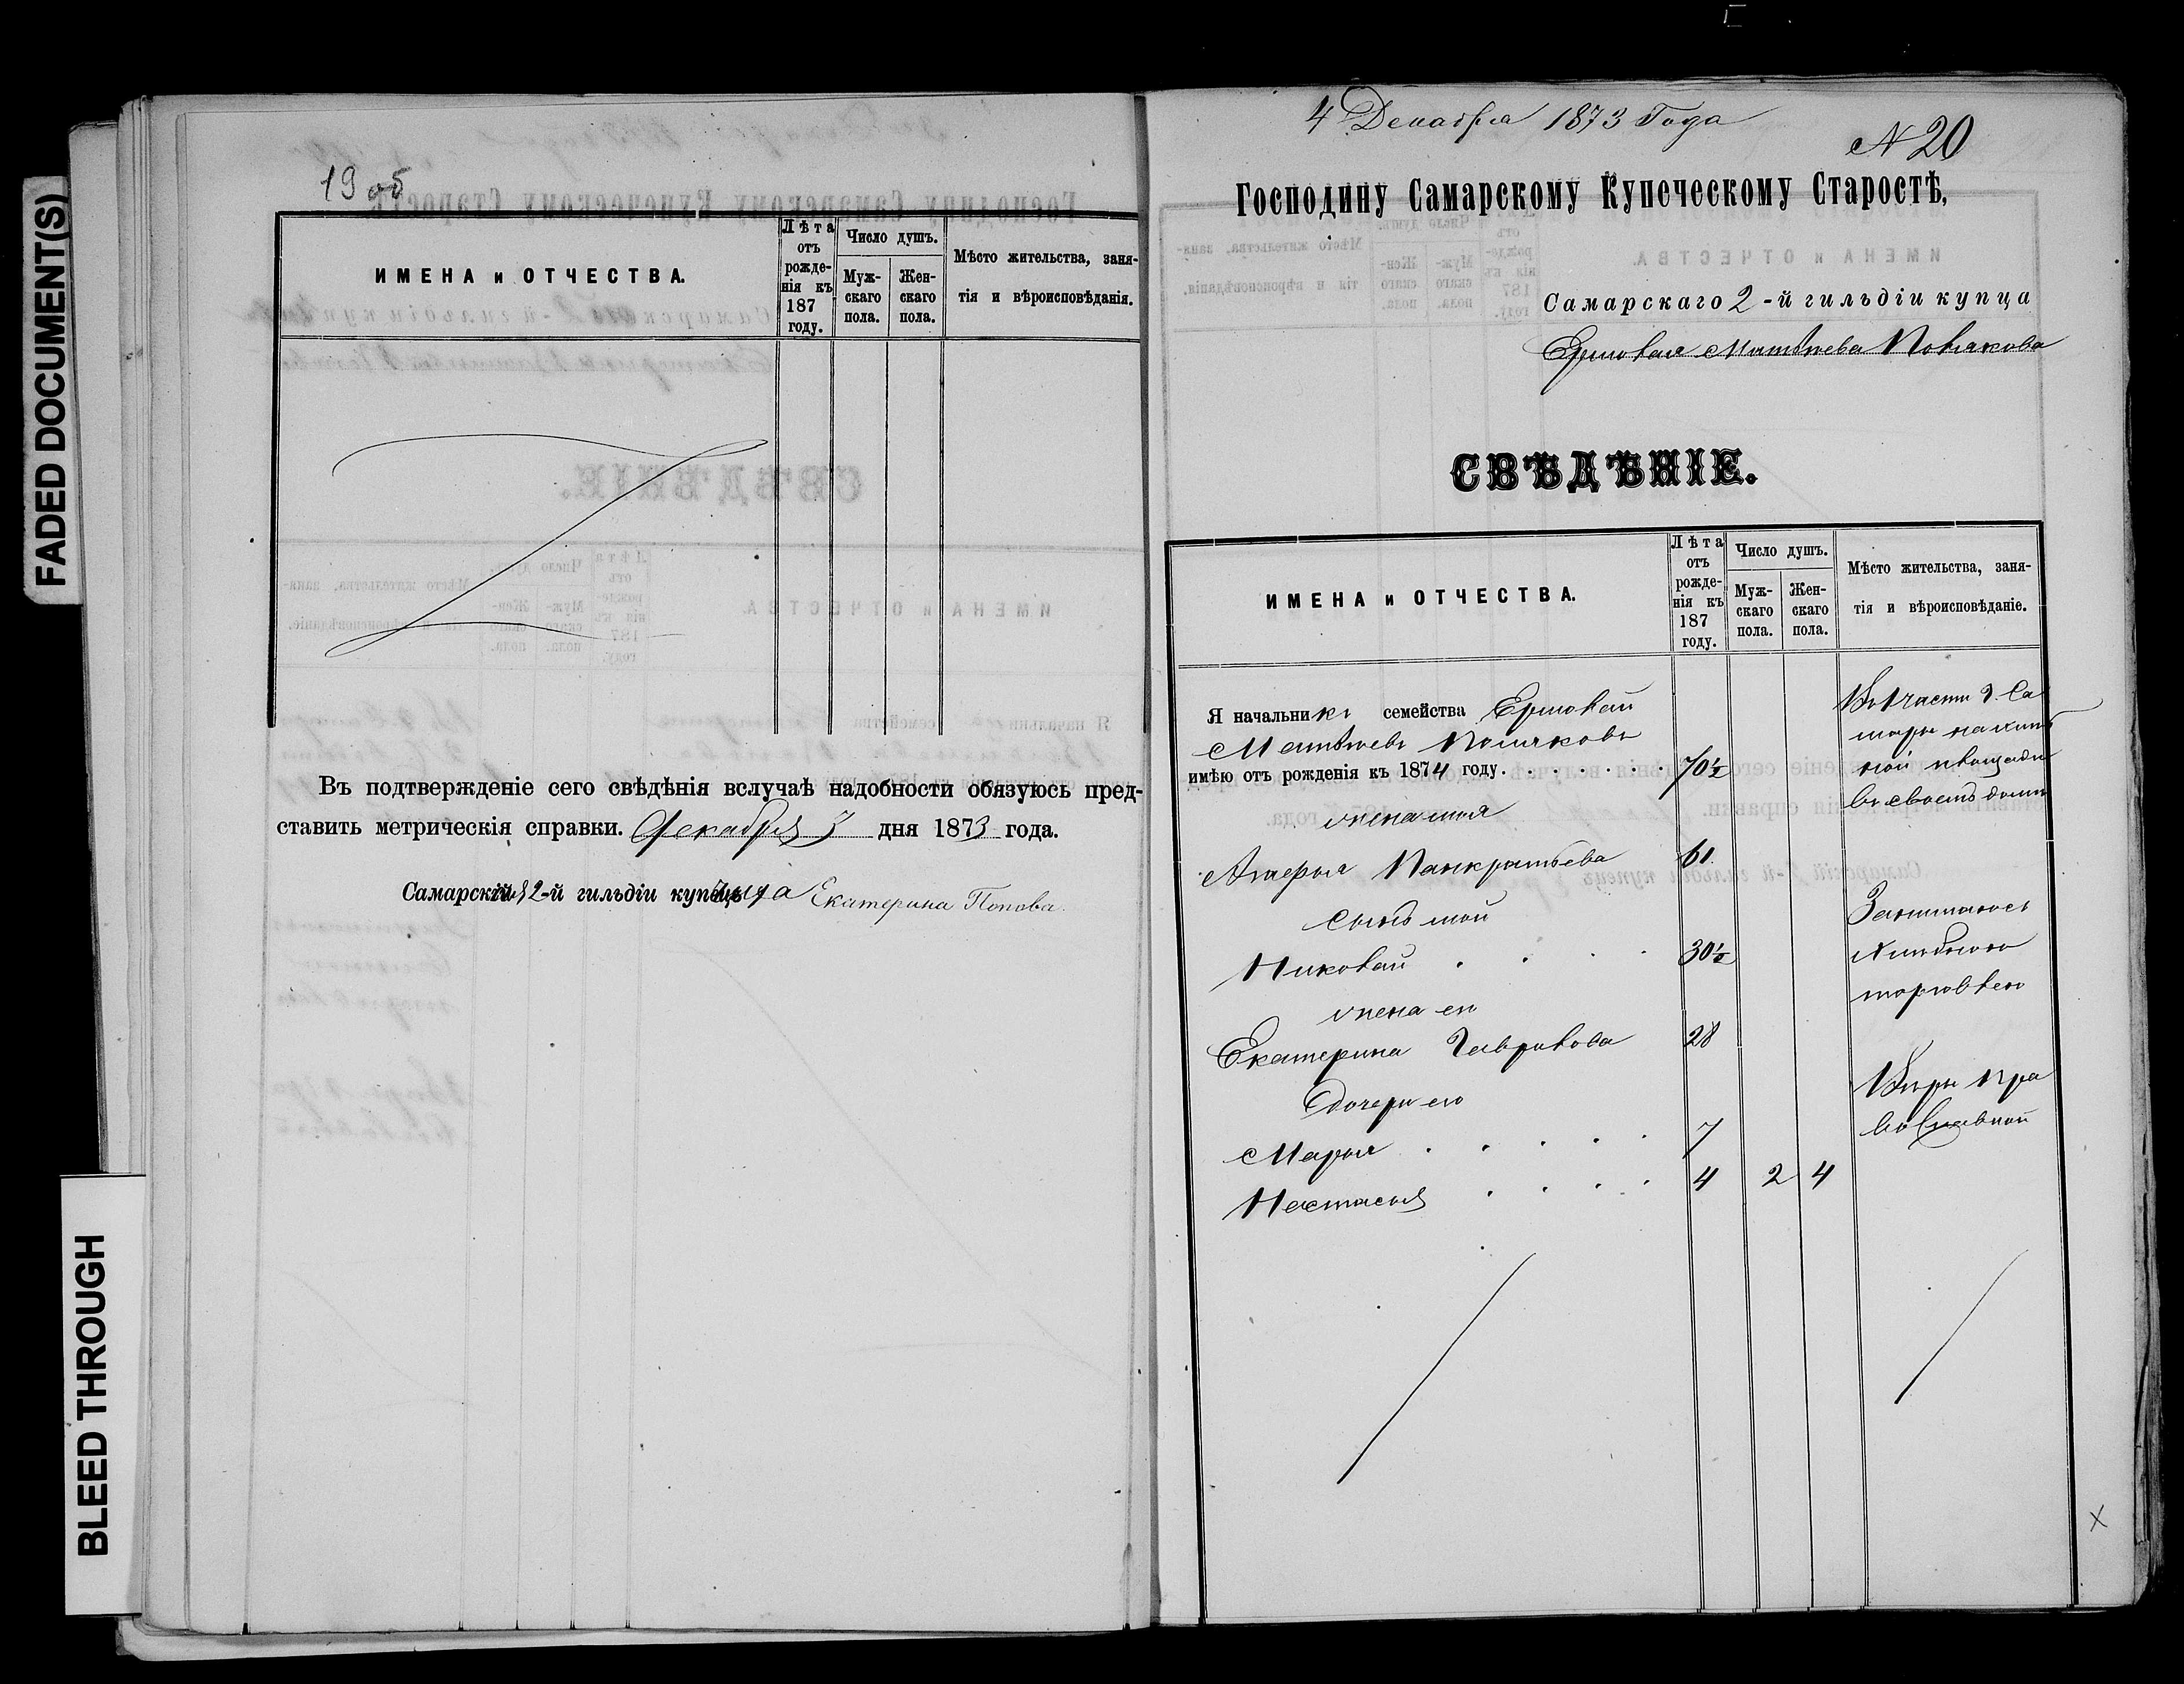 FADED DOCUMENT(S)
BLEED THROUGH
19 об
ИМЕНА и ОТЧЕСТВА.
Лѣта отъ рожденія къ 187 году.
Число душъ.
Мужскаго пола.
Женскаго пола.
Мѣсто жительства, заня-
тія и вѣроисповѣданія.
Въ подтвержденіе сего свѣдѣнія вслучаѣ надобности обязуюсь пред-
ставить метрическія справки. Декабря 3 дня 1873 года.
Самарская 2-й гильдіи купчиха Екатерина Попова.
4 Декабря 1873 Года
N 20
Господину Самарскому Купеческому Старостѣ,
Самарскаго 2-й гильдіи купца
Ермолая Матвѣева Полякова
СВѢДѢНІЕ.
ИМЕНА и ОТЧЕСТВА.
Лѣта отъ рожденія къ 187 году.
Число душъ.
Мужскаго пола.
Женскаго пола.
Мѣсто жительства, заня-
тія и вѣроисповѣданіе.
Я начальникъ семейства Ермолай
Матвѣевъ Поляковъ
имѣю отъ рожденія къ 1874 году. 70½
жена моя
Панкратьева 61.
сынъ мой
Николай 30½
жена его
Екатерина Гаврилова 28
дочери его
Марья 7
Настасья 4 2 4
части г. Са
мары на хлѣб
ной площади
въ своемъ домѣ
Занимаюсь
хлѣбною
торговлею
Вѣры Пра
вославной